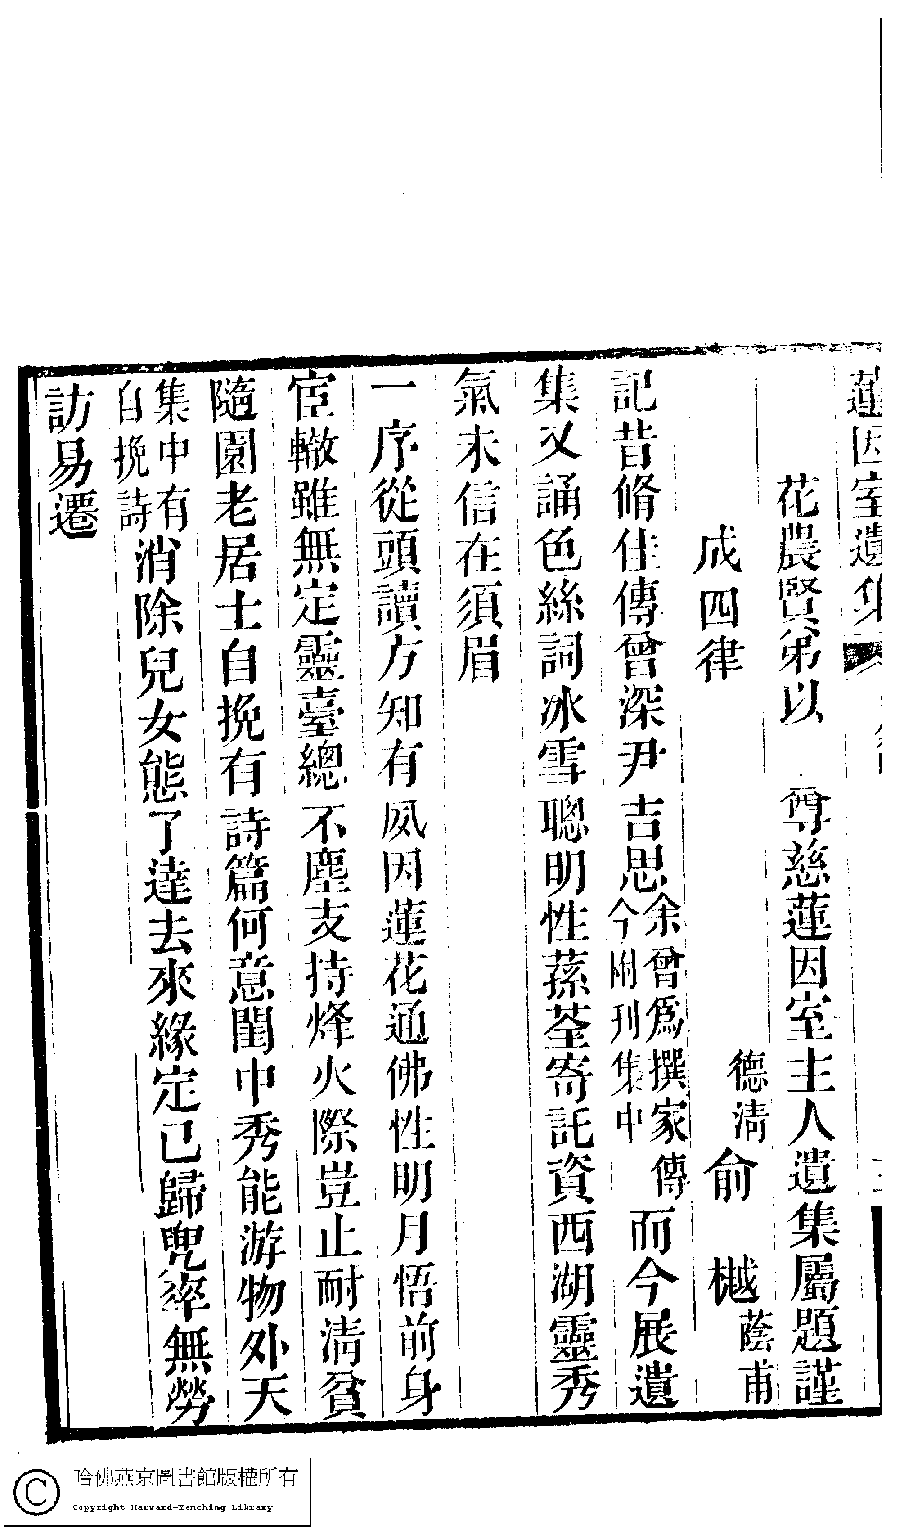 蓮因室遺集
花農賢弟以　尊慈蓮因室主人遺集屬題謹
成四律　德淸俞樾蔭甫
記昔脩佳傳曾深尹吉思余曾爲撰家傳今附刊集中而今展遺
集又誦色絲詞冰雪聰明性蓀荃寄託資西湖靈秀
氣未信在須眉
一序從頭讀方知有夙因蓮花通佛性明月悟前身
宦轍雖無定靈臺總不塵支持烽火際豈止耐淸貧
隨園老居士自挽有詩篇何意閨中秀能游物外天
集中有自挽詩消除兒女態了達去來緣定已歸兜率無勞
訪易遷
哈佛燕京圖書館版權所有
Copyright Harvard-Yenching Library